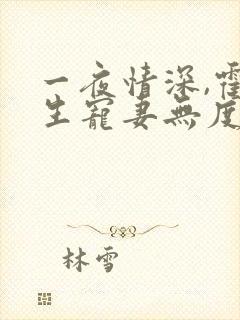 一夜情深,霍
生寵妻無度
林雪